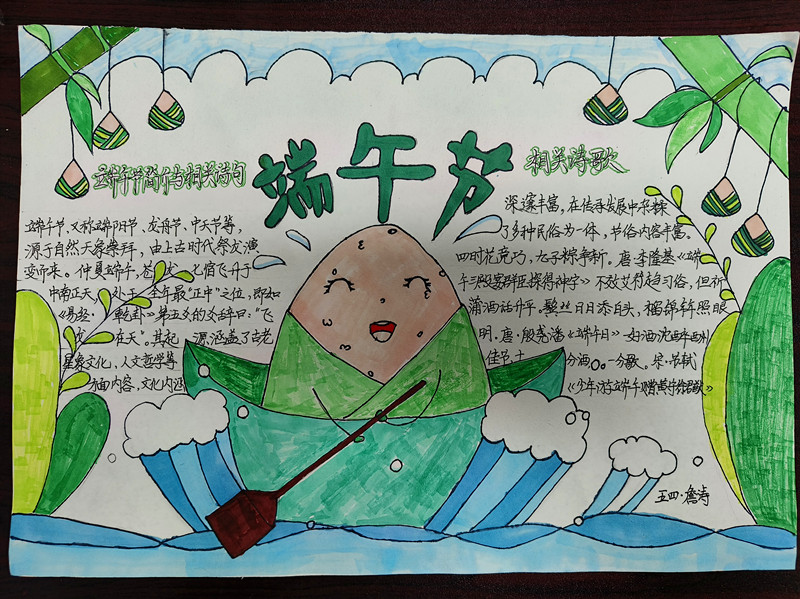 端午节
端午节简介与相关诗句
端午节,又称端阳节、龙舟节、中天节等,
源于自然天象崇拜,由上古时代祭龙演
变而来。仲夏端午,苍龙七宿飞升于
中南正天,处于全年最“正中”之位,即如
《易经·乾卦》第五爻的爻辞曰:“飞
龙在天”。其起源涵盖了古老
星象文化,人文哲学等
方面内容,文化内涵
相关诗歌
深邃丰富,在传承发展中杂糅
了多种民俗为一体,节俗内容丰富。
四时花竞巧,九子粽争新。唐·李隆基《端
午三殿宴群臣探得神字》不效艾符趋习俗,但祈
蒲酒话升平。
明。唐·殷尧藩《端午日》
佳节
《少年游·端午赠黄守徐君猷》
五四·詹涛